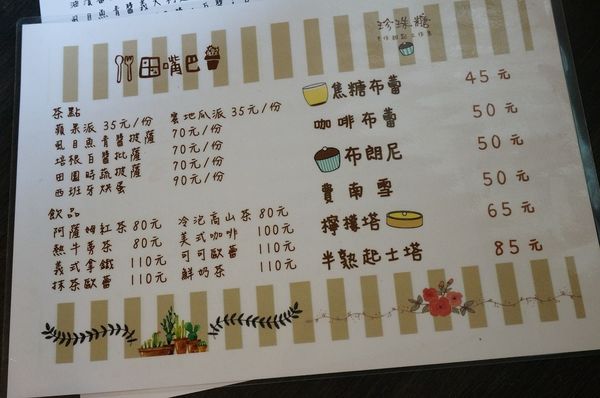 珍珠糖
田嘴巴
茶點
蘋果派 35元/份 蜜地瓜派 35元/份
虱目魚青醬披薩 70元/份
培根白醬批薩 70元/份
田園時蔬披薩 70元/份
西班牙烘蛋 90元/份
飲品
阿薩姆紅茶 80元 冷泡高山茶 80元
熱牛蒡茶 80元 美式咖啡 100元
義式拿鐵 110元 可可歐蕾 110元
抹茶歐蕾 110元 鮮奶茶 110元
焦糖布蕾 45元
咖啡布蕾 50元
布朗尼 50元
費南雪 50元
檸檬塔 65元
半熟起士塔 85元